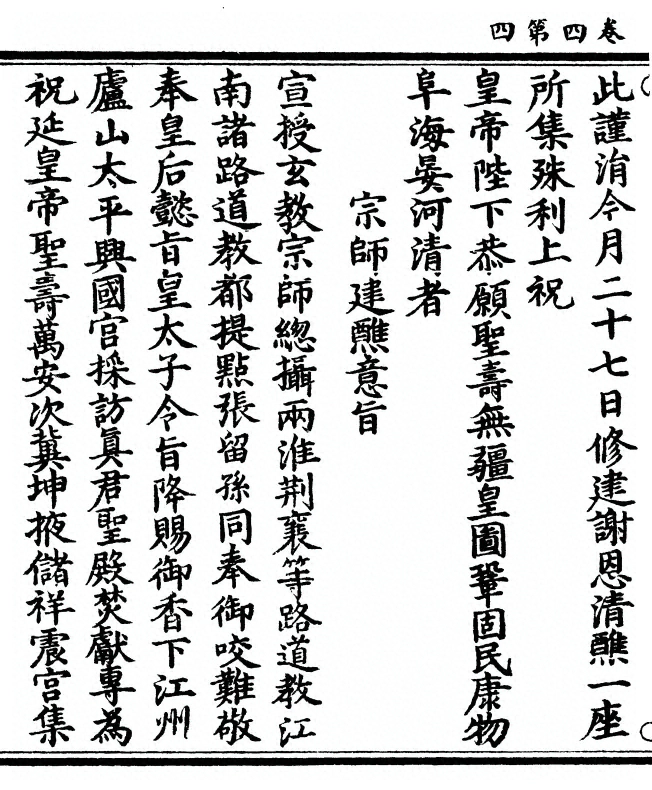 卷四第四
此謹涓今月二十七日修建謝恩清醮一座
所集殊利上祝
皇帝陛下恭願聖壽無疆皇圖鞏固民康物
阜海晏河清者
宗師建醮意旨
宣授玄教宗師總攝兩淮荆襄等路道教江
南諸路道教都提點張留孫同奉御咬難敬
奉皇后懿旨皇太子令旨降賜御香下江州
廬山太平興國宫採訪眞君聖殿焚獻專為
祝延皇帝聖壽萬安次冀坤掖儲祥震宫集